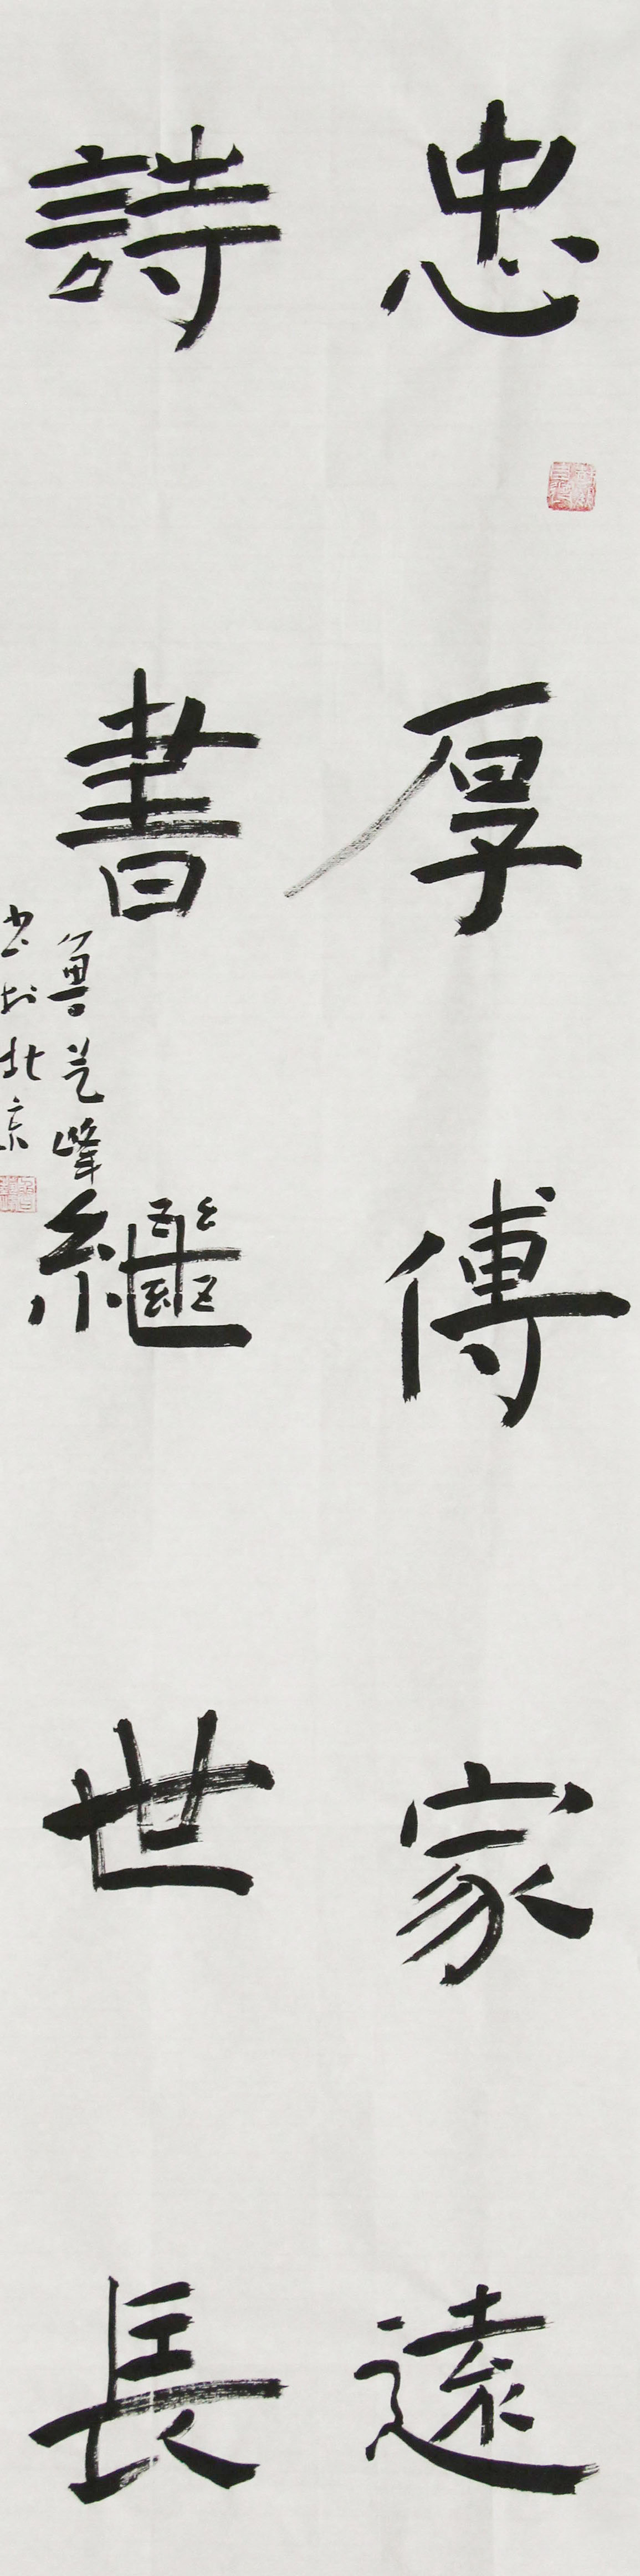 忠厚傳家遠
詩書繼世長
魯芝峰
书於北京